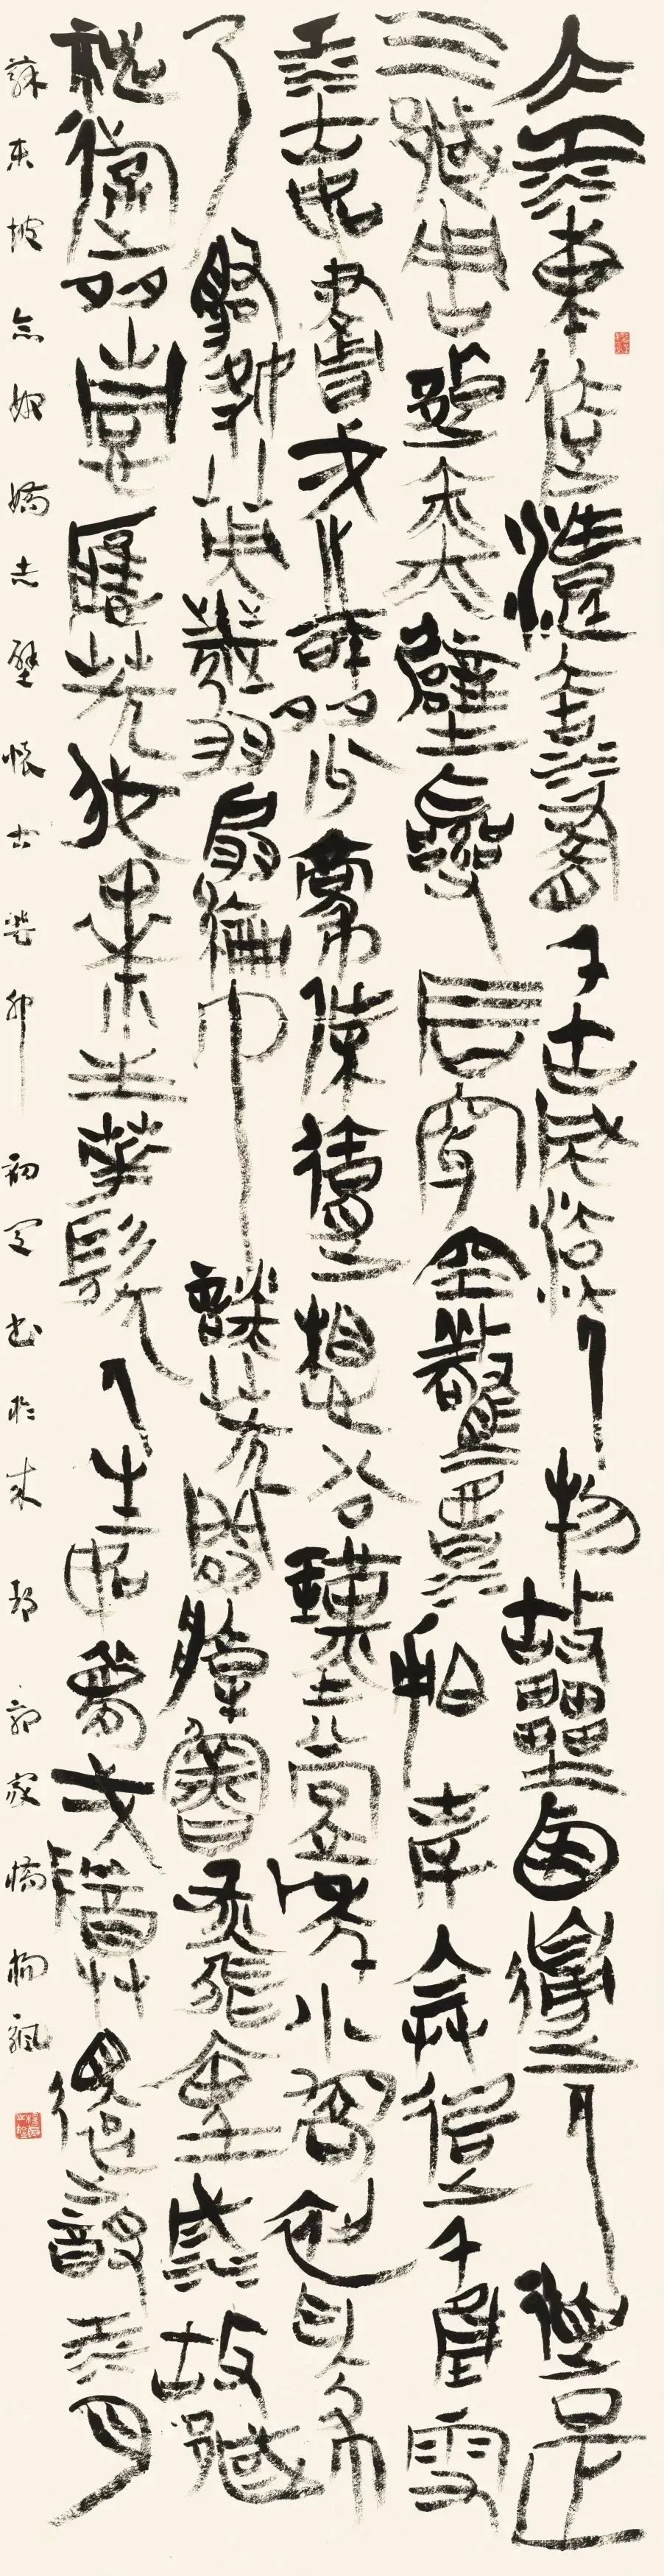 大江東去浪淘盡千古風流人物故壘西邊人道是
三國周郎赤壁亂石穿空驚濤拍岸捲起千堆雪
江山如畫一時多少豪傑遙想公瑾當年小喬初嫁
了雄姿英發羽扇綸巾談笑間檣櫓灰飛煙滅故國
神遊多情應笑我早生華髮人生如夢一尊還酹江月
蘇東坡念奴嬌赤壁懷古癸卯初夏書於成都郭家橋楊飆